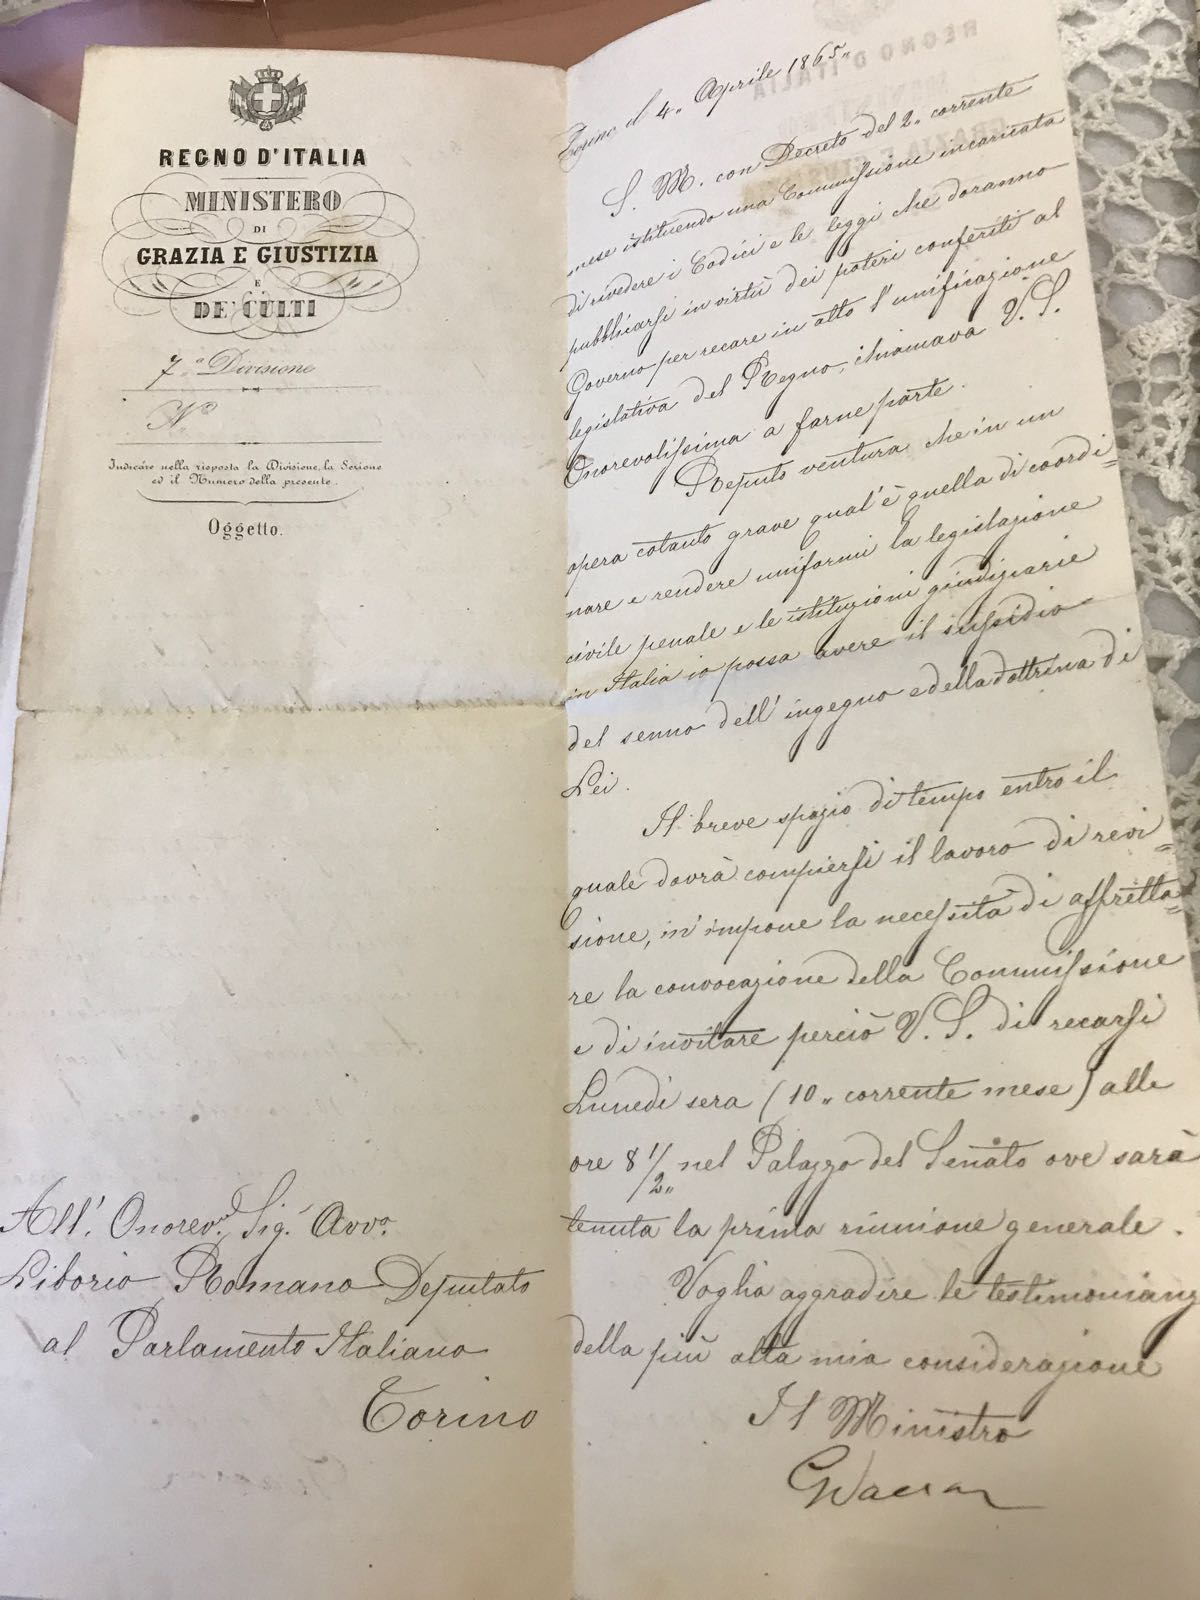 REGNO D'ITALIA
MINISTERO
DI
GRAZIA E GIUSTIZIA
E
DE' CULTI
7.a Divisione
N.o
Indicare nella risposta la Divisione, la Sezione
ed il Numero della presente.
Oggetto.
All'. Onorev. Sig. Avvo.
Liborio Romano Deputato
al Parlamento Italiano
Torino
Torino il 4,, Aprile 1865,,
S. M. con Decreto del 2,, corrente
mese istituendo una Commissione incaricata
di rivedere i Codici e le leggi che doranno
pubblicarsi in virtù dei poteri conferiti al
Governo per recare in atto l'unificazione
legislativa del Regno, chiamava V. S.
Onorevolissima a farne parte.
Reputo ventura che in un
opera cotanto grave qual'è quella di coordi=
nare e rendere uniformi la legislazione
civile penale e le istituzioni giudiziarie
in Italia io possa avere il sussidio
del senno dell'ingegno e della dottrina di
Lei.
Il breve spazio di tempo entro il
quale dovrà compiersi il lavoro di revi=
sione, m'impone la necessità di affretta=
re la convocazione della Commissione
e di invitare perciò V. S. di recarsi
Lunedì sera (10,, corrente mese) alle
ore 8 1/2,, nel Palazzo del Senato ove sarà
tenuta la prima riunione generale.
Voglia aggradire le testimonianz
della più alta mia considerazione
Il Ministro
GVacca